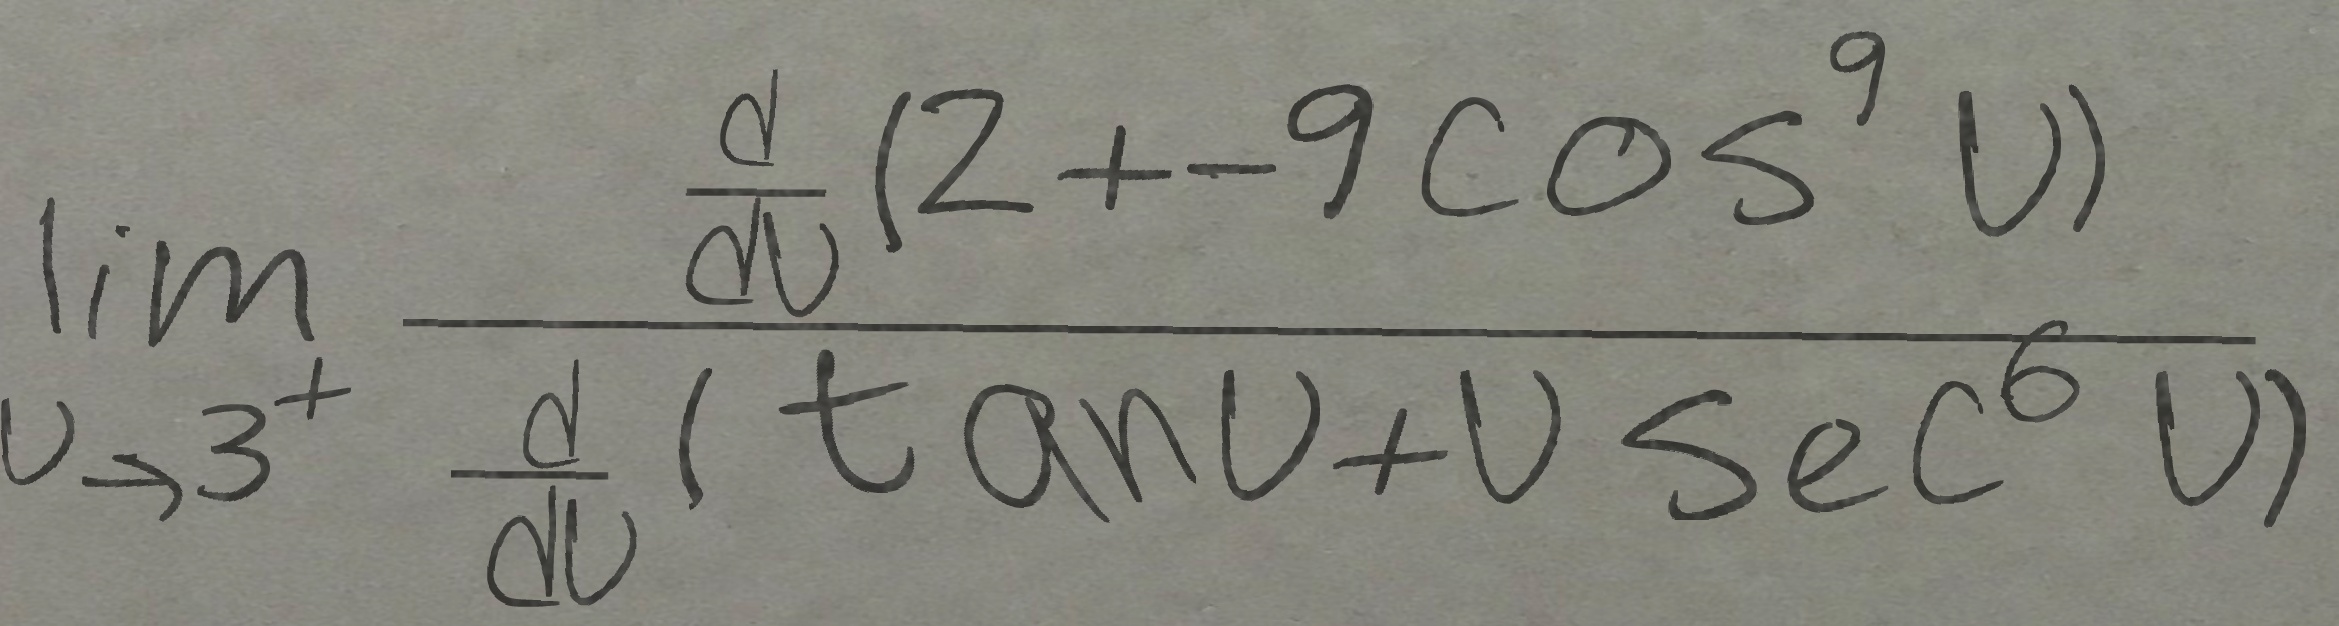 \lim_{v \to 3^+} \frac{\frac{d}{dv}(2+-9\cos^9 v)}{\frac{d}{dv}(\tan v+v\sec^6 v)}